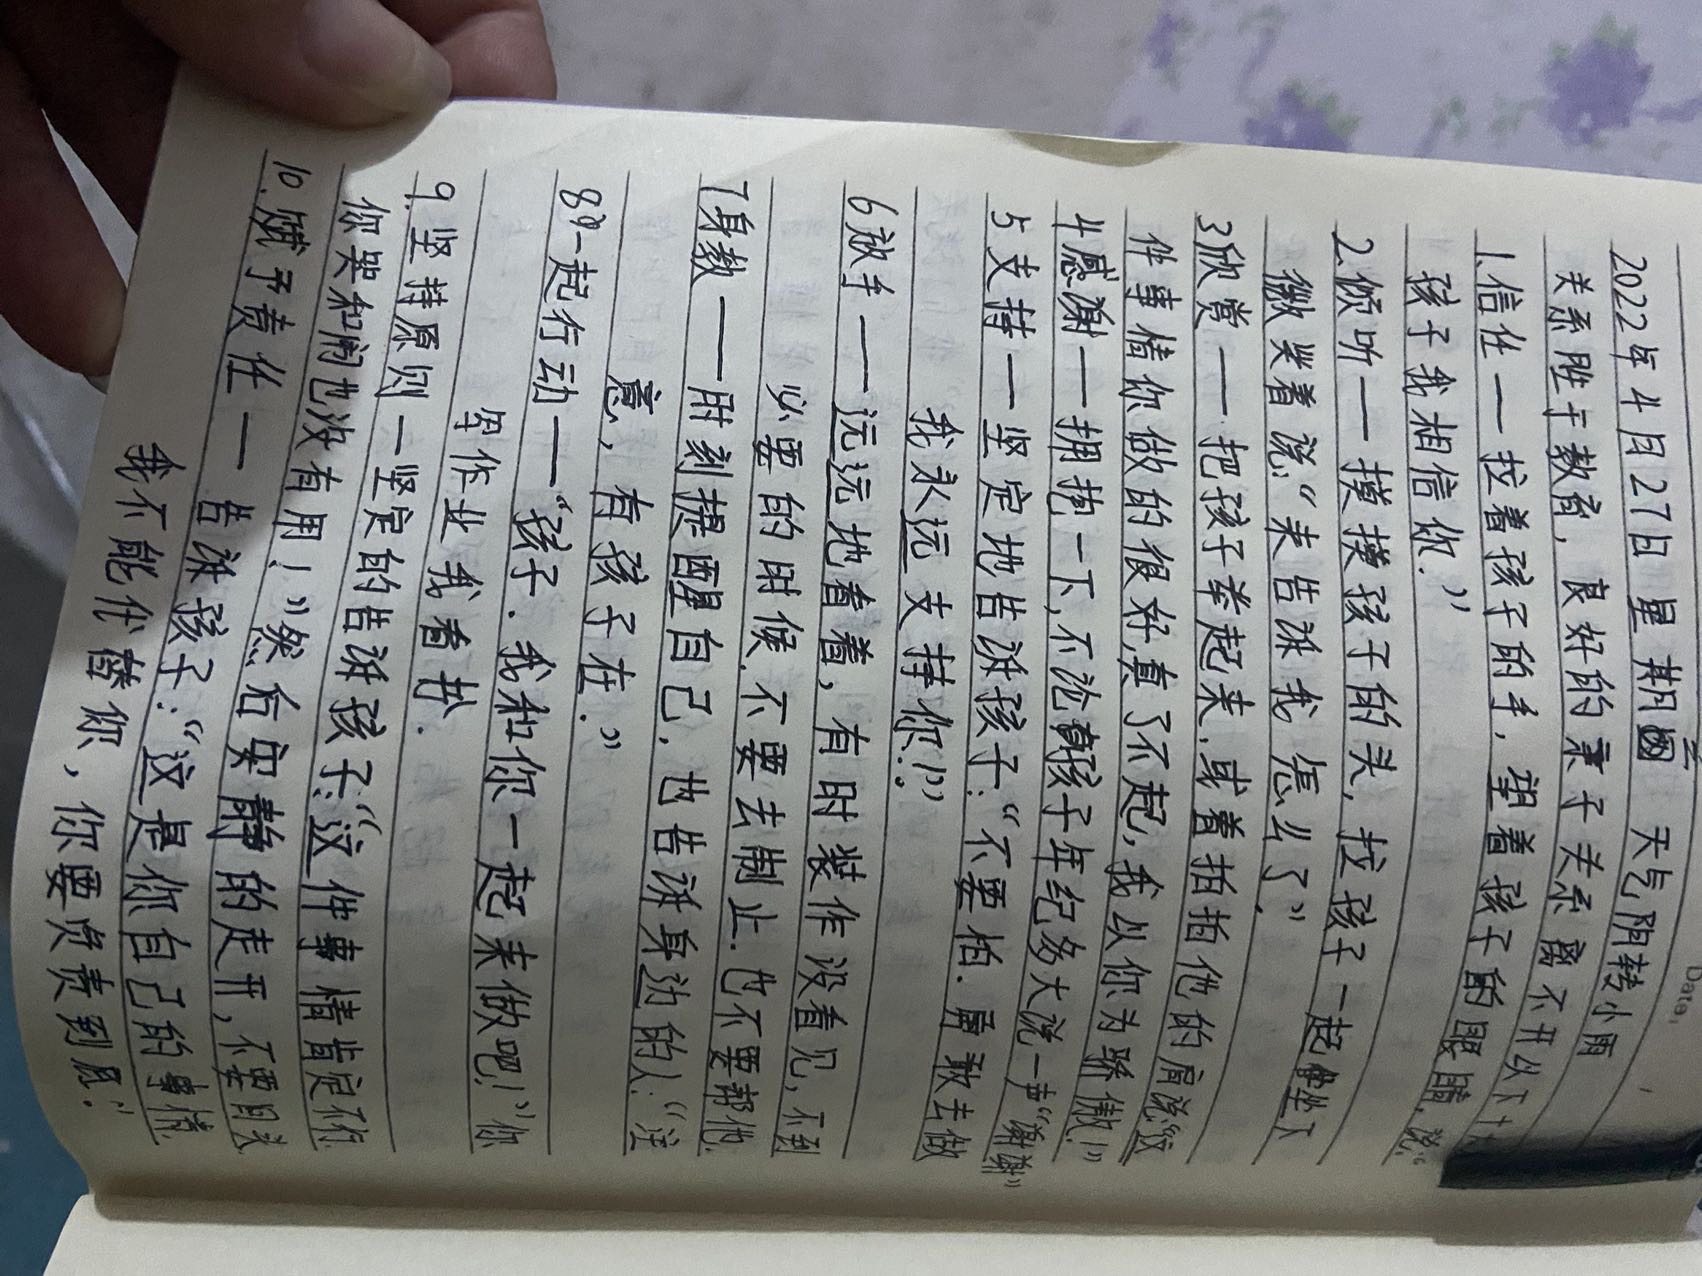 Date:
2022年4月27日 星期三 天气阴转小雨
关系胜于教育，良好的亲子关系离不开以下十
1.信任——拉着孩子的手，望着孩子的眼睛，说:“
孩子我相信你.”
2.倾听——摸摸孩子的头，拉孩子一起坐下
微笑着说:“来告诉我 怎么了”.
3欣赏——把孩子举起来.或着拍拍他的肩说:“这
件事情你做的很好,真了不起,我以你为骄傲!”
4感谢——拥抱一下,不论孩子年纪多大说一声“谢谢”
5支持——坚定地告诉孩子:“不要怕.勇敢去做
我永远支持你!”
6放手——远远地看着，有时装作没看见，不到
必要的时候.不要去制止.也不要帮他.
7身教——时刻提醒自己，也告诉身边的人:“注
意，有孩子在.”
8一起行动——“孩子.我和你一起来做吧!”你
写作业我看书.
9.坚持原则——坚定的告诉孩子:“这件事情肯定不行
你哭和闹也没有用!”然后安静的走开,不要因为
10.赋予责任——告诉孩子:“这是你自己的事情.
我不能代替你，你要负责到底.”